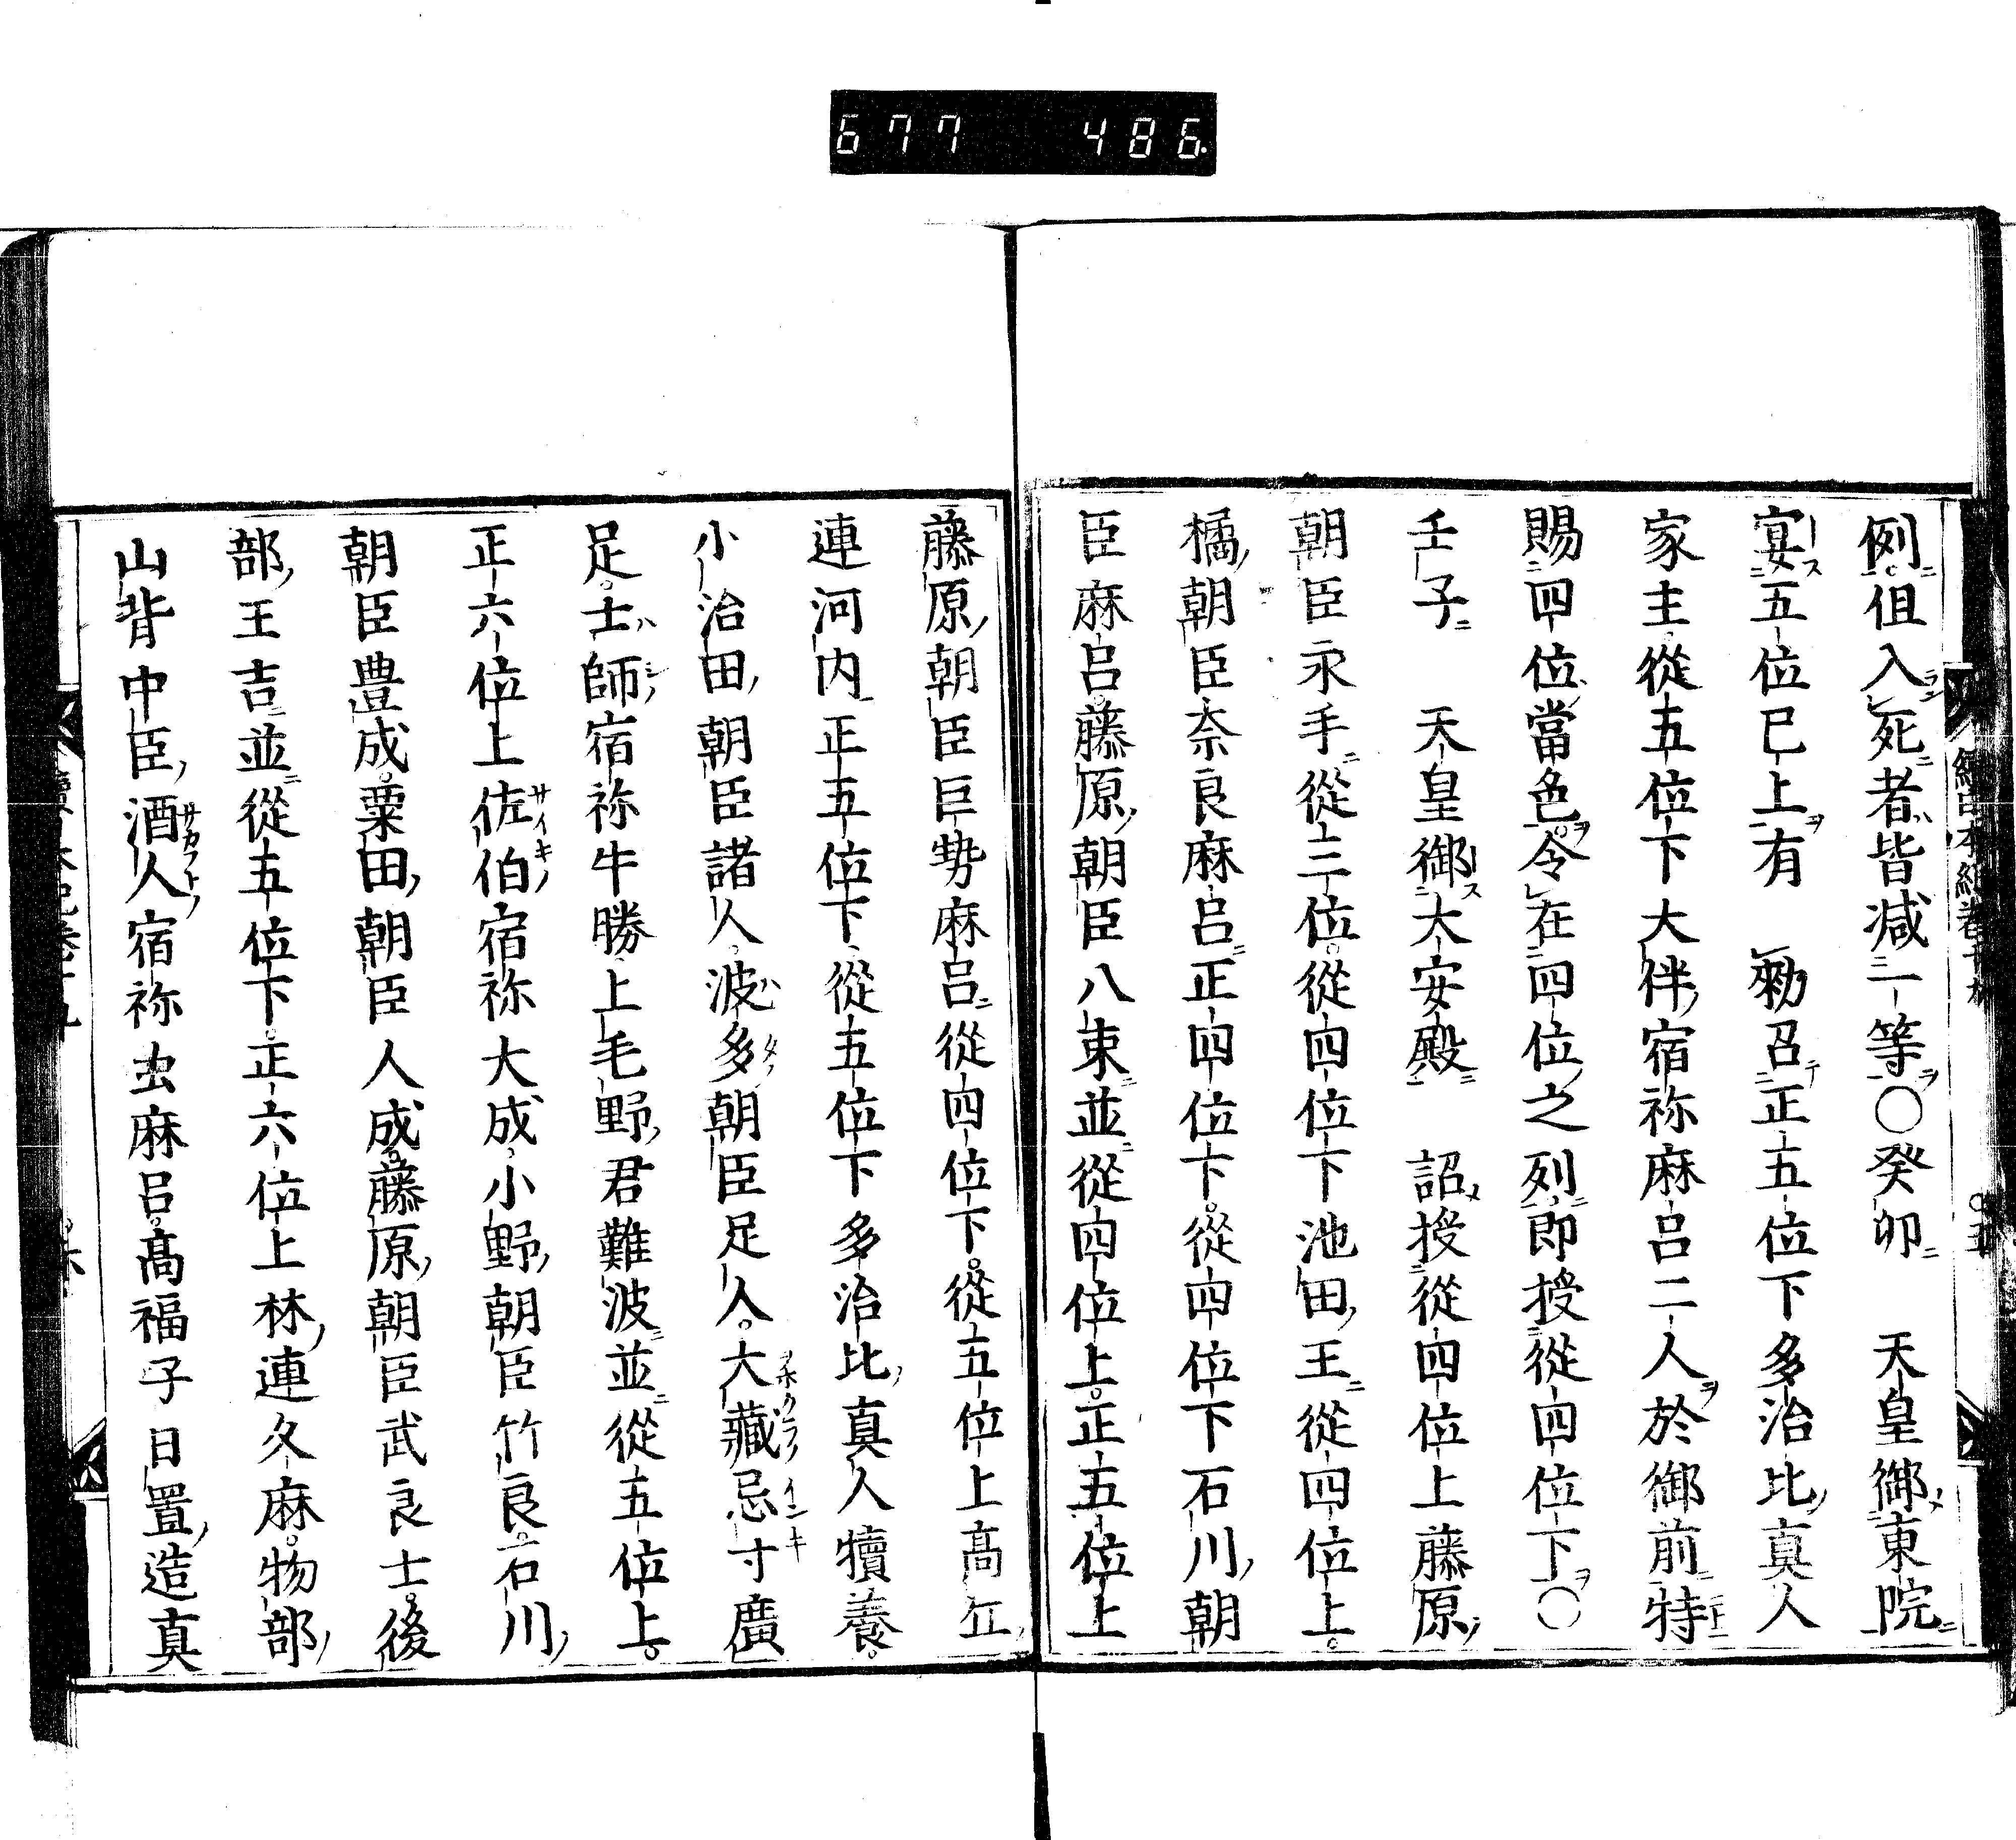 677 486
例但入死者皆減一等〇癸卯　天皇御東院
宴五位巳上有　勅召正五位下多治比真人
家主從五位下大伴宿祢麻呂二人於御前特
賜四位當色令在四位之列即授從四位下〇
壬子　天皇御大安殿　詔授從四位上藤原
朝臣永手從三位從四位下池田王從四位上
橘朝臣奈良麻呂正四位下從四位下石川朝
臣麻呂藤原朝臣八束並從四位上正五位上
藤原朝臣巨勢麻呂從四位下從五位上高丘
連河内正五位下從五位下多治比真人犢養
小治田朝臣諸人波多朝臣足人大藏忌寸廣
足士師宿祢牛勝上毛野君難波並從五位上
正六位上佐伯宿祢大成小野朝臣竹良石川
朝臣豊成粟田朝臣人成藤原朝臣武良士後
部王吉並從五位下正六位上林連久麻物部
山背中臣酒人宿祢虫麻呂高福子日置造真